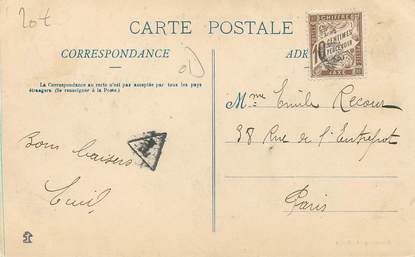 20t
CARTE POSTALE
CORRESPONDANCE
La Correspondance au recto n'est pas acceptée par tous les pays
étrangers (Se renseigner à la Poste.)
Bons baisers
CHIFFRE
10 CENTIMES
À PERCEVOIR
TAXE
T
Mme Emile Recour
38 Rue de l'Entrepot
Paris